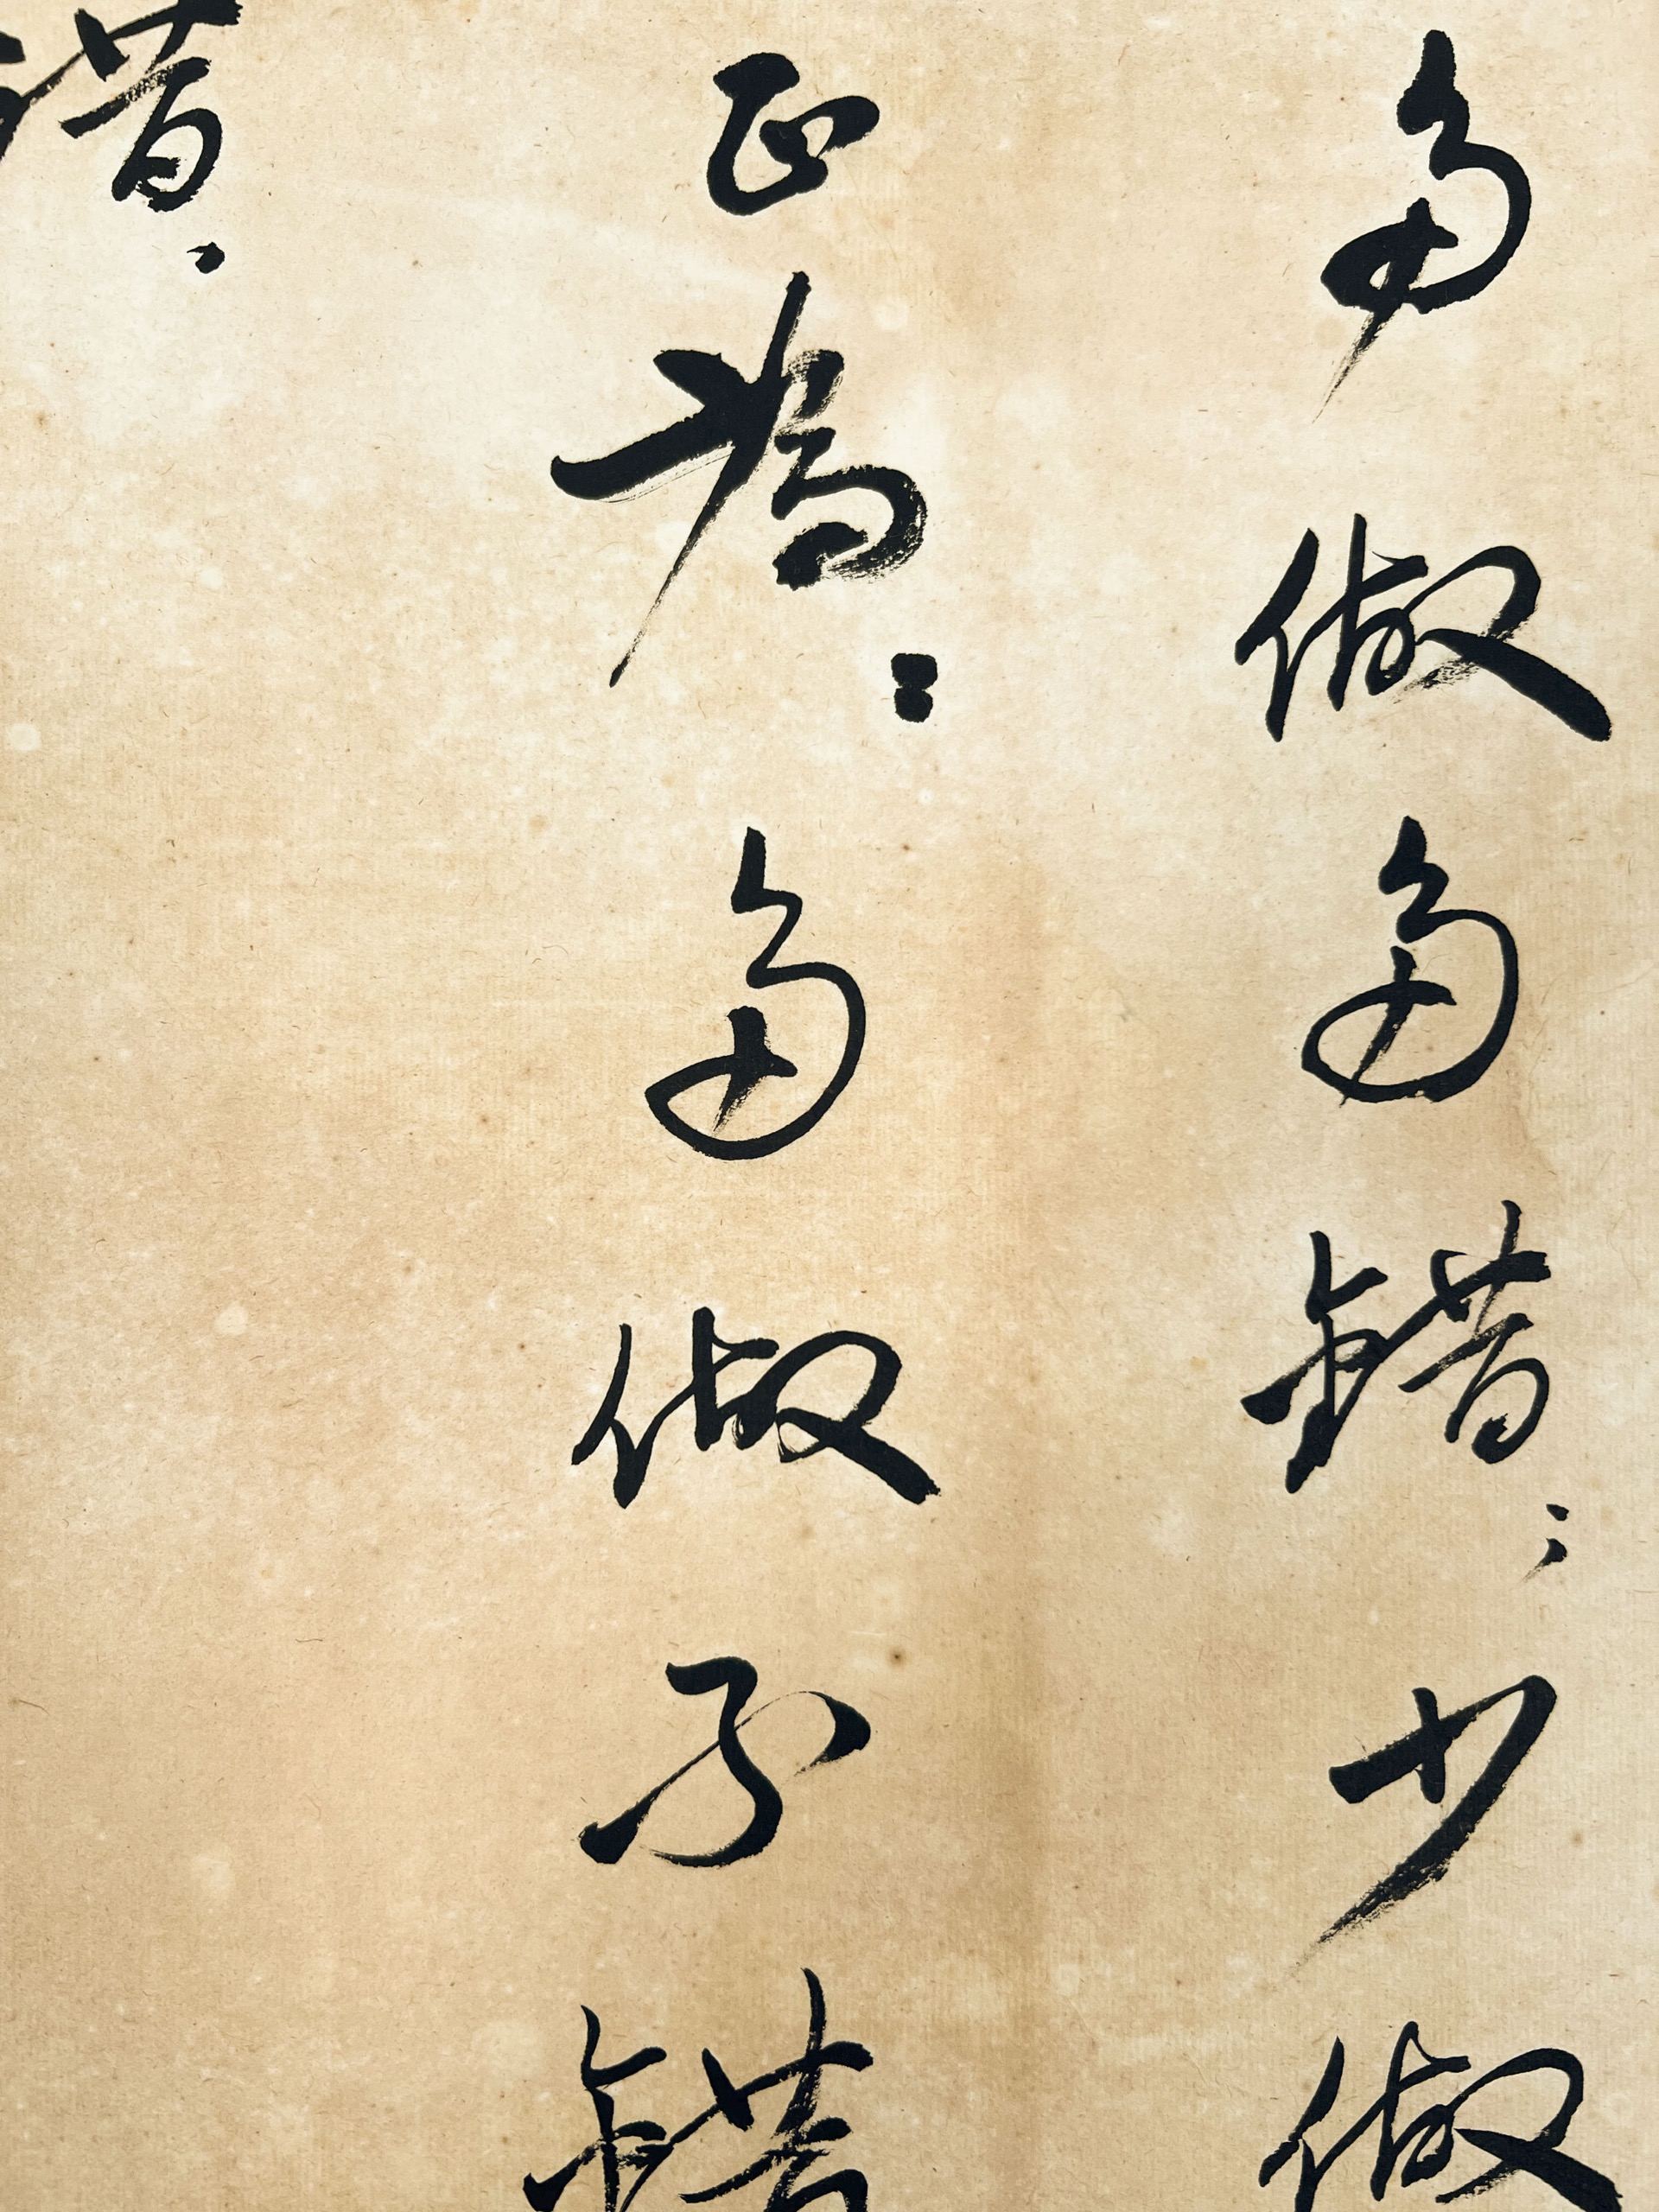 多做多錯；少做
正為：多做不錯
錯。